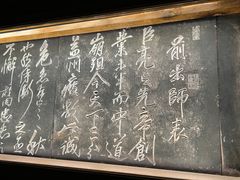 前出師表
臣亮言先帝創
業未半而中道
崩殂今天下三分
益州疲敝此誠
危急存亡之秋
也然侍衛之臣
不懈